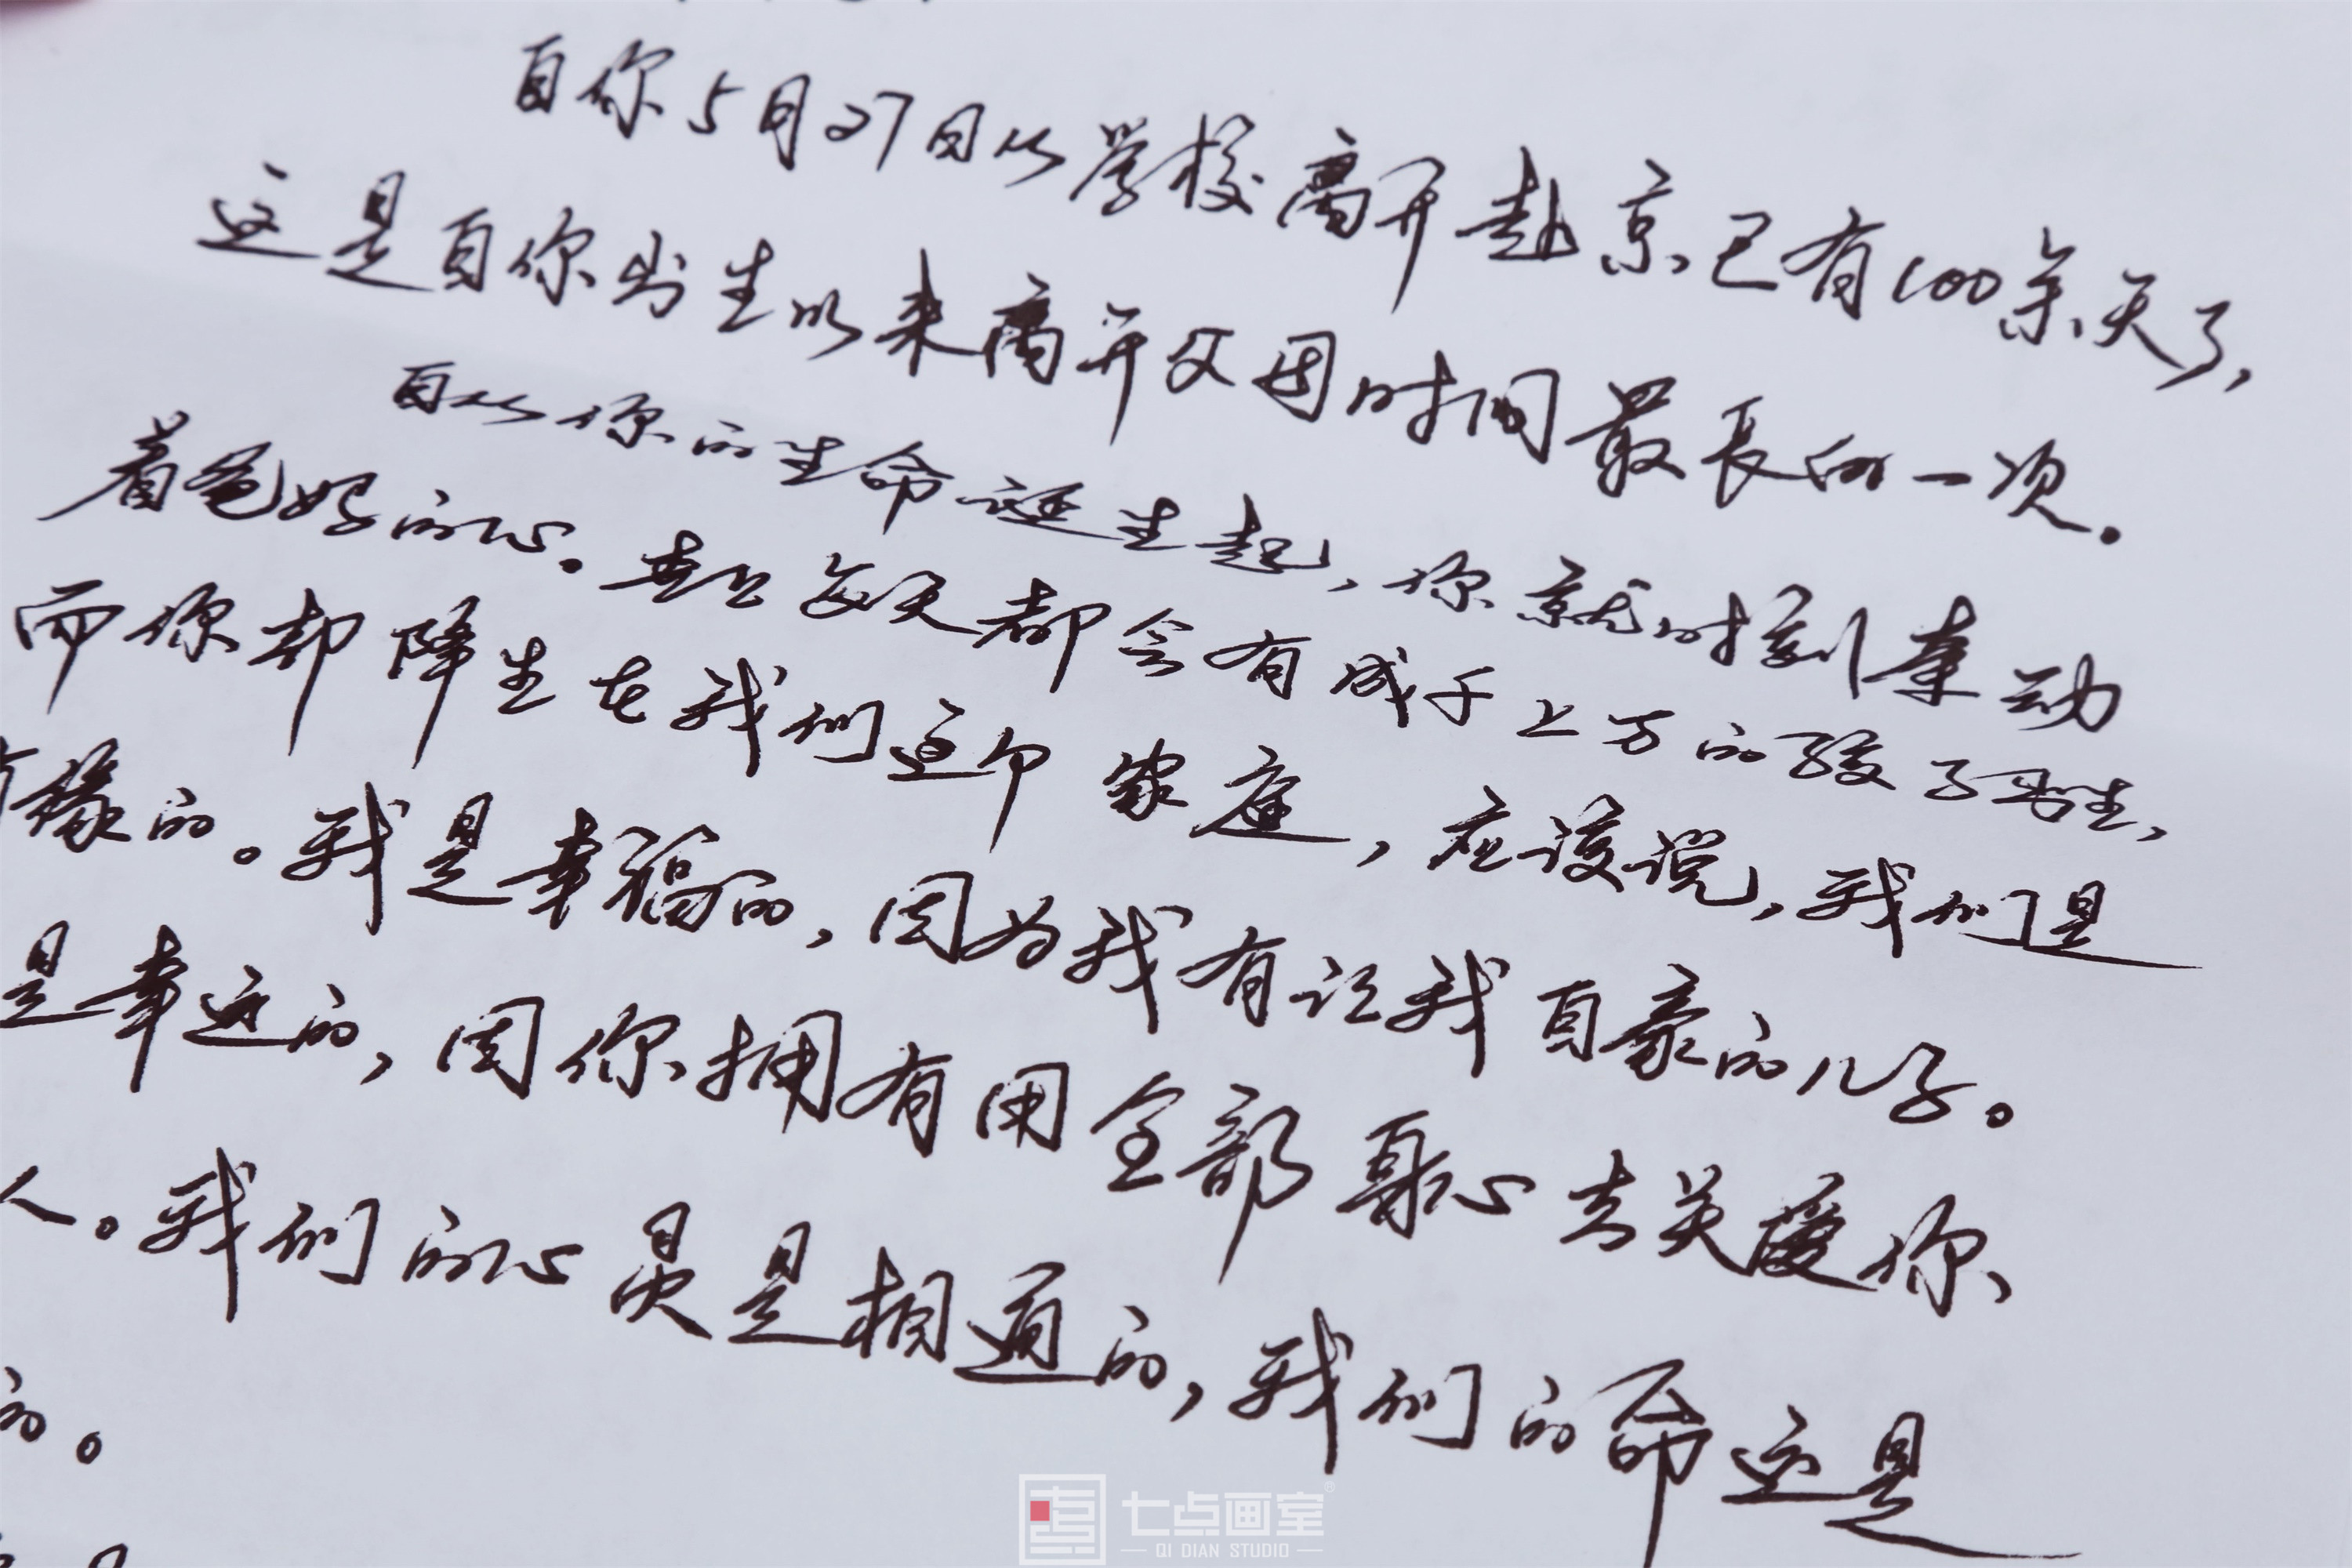 自你5月27日从学校离开赴京已有100余天了，
这是自你出生以来离开父母时间最长的一次。
自从你的生命诞生起，你就时刻牵动
着爸妈的心。世上每天都会有成千上万的孩子出生，
而你却降生在我们这个家庭，应该说，我们是
有缘的。我是幸福的，因为我有让我自豪的儿子。
是幸运的，因你拥有用全部身心去关爱你
人。我们的心灵是相通的，我们的命运是
的。
七点画室®
QI DIAN STUDIO